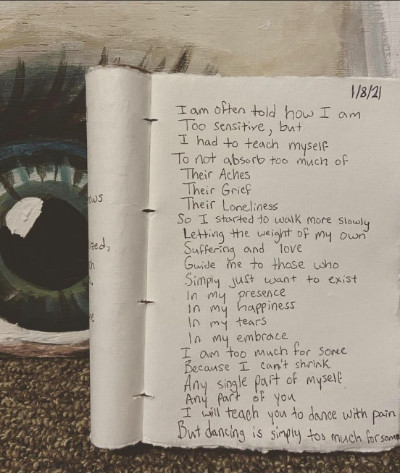 1/8/21
I am often told how I am
Too sensitive, but
I had to teach myself
To not absorb too much of
Their Aches
Their Grief
Their Loneliness
So I started to walk more slowly
Letting the weight of my own
Suffering and love
Guide me to those who
Simply just want to exist
In my presence
In my happiness
In my tears
In my embrace
I am too much for some
Because I can't shrink
Any single part of myself
Any part of you
I will teach you to dance with pain
But dancing is simply too much for some